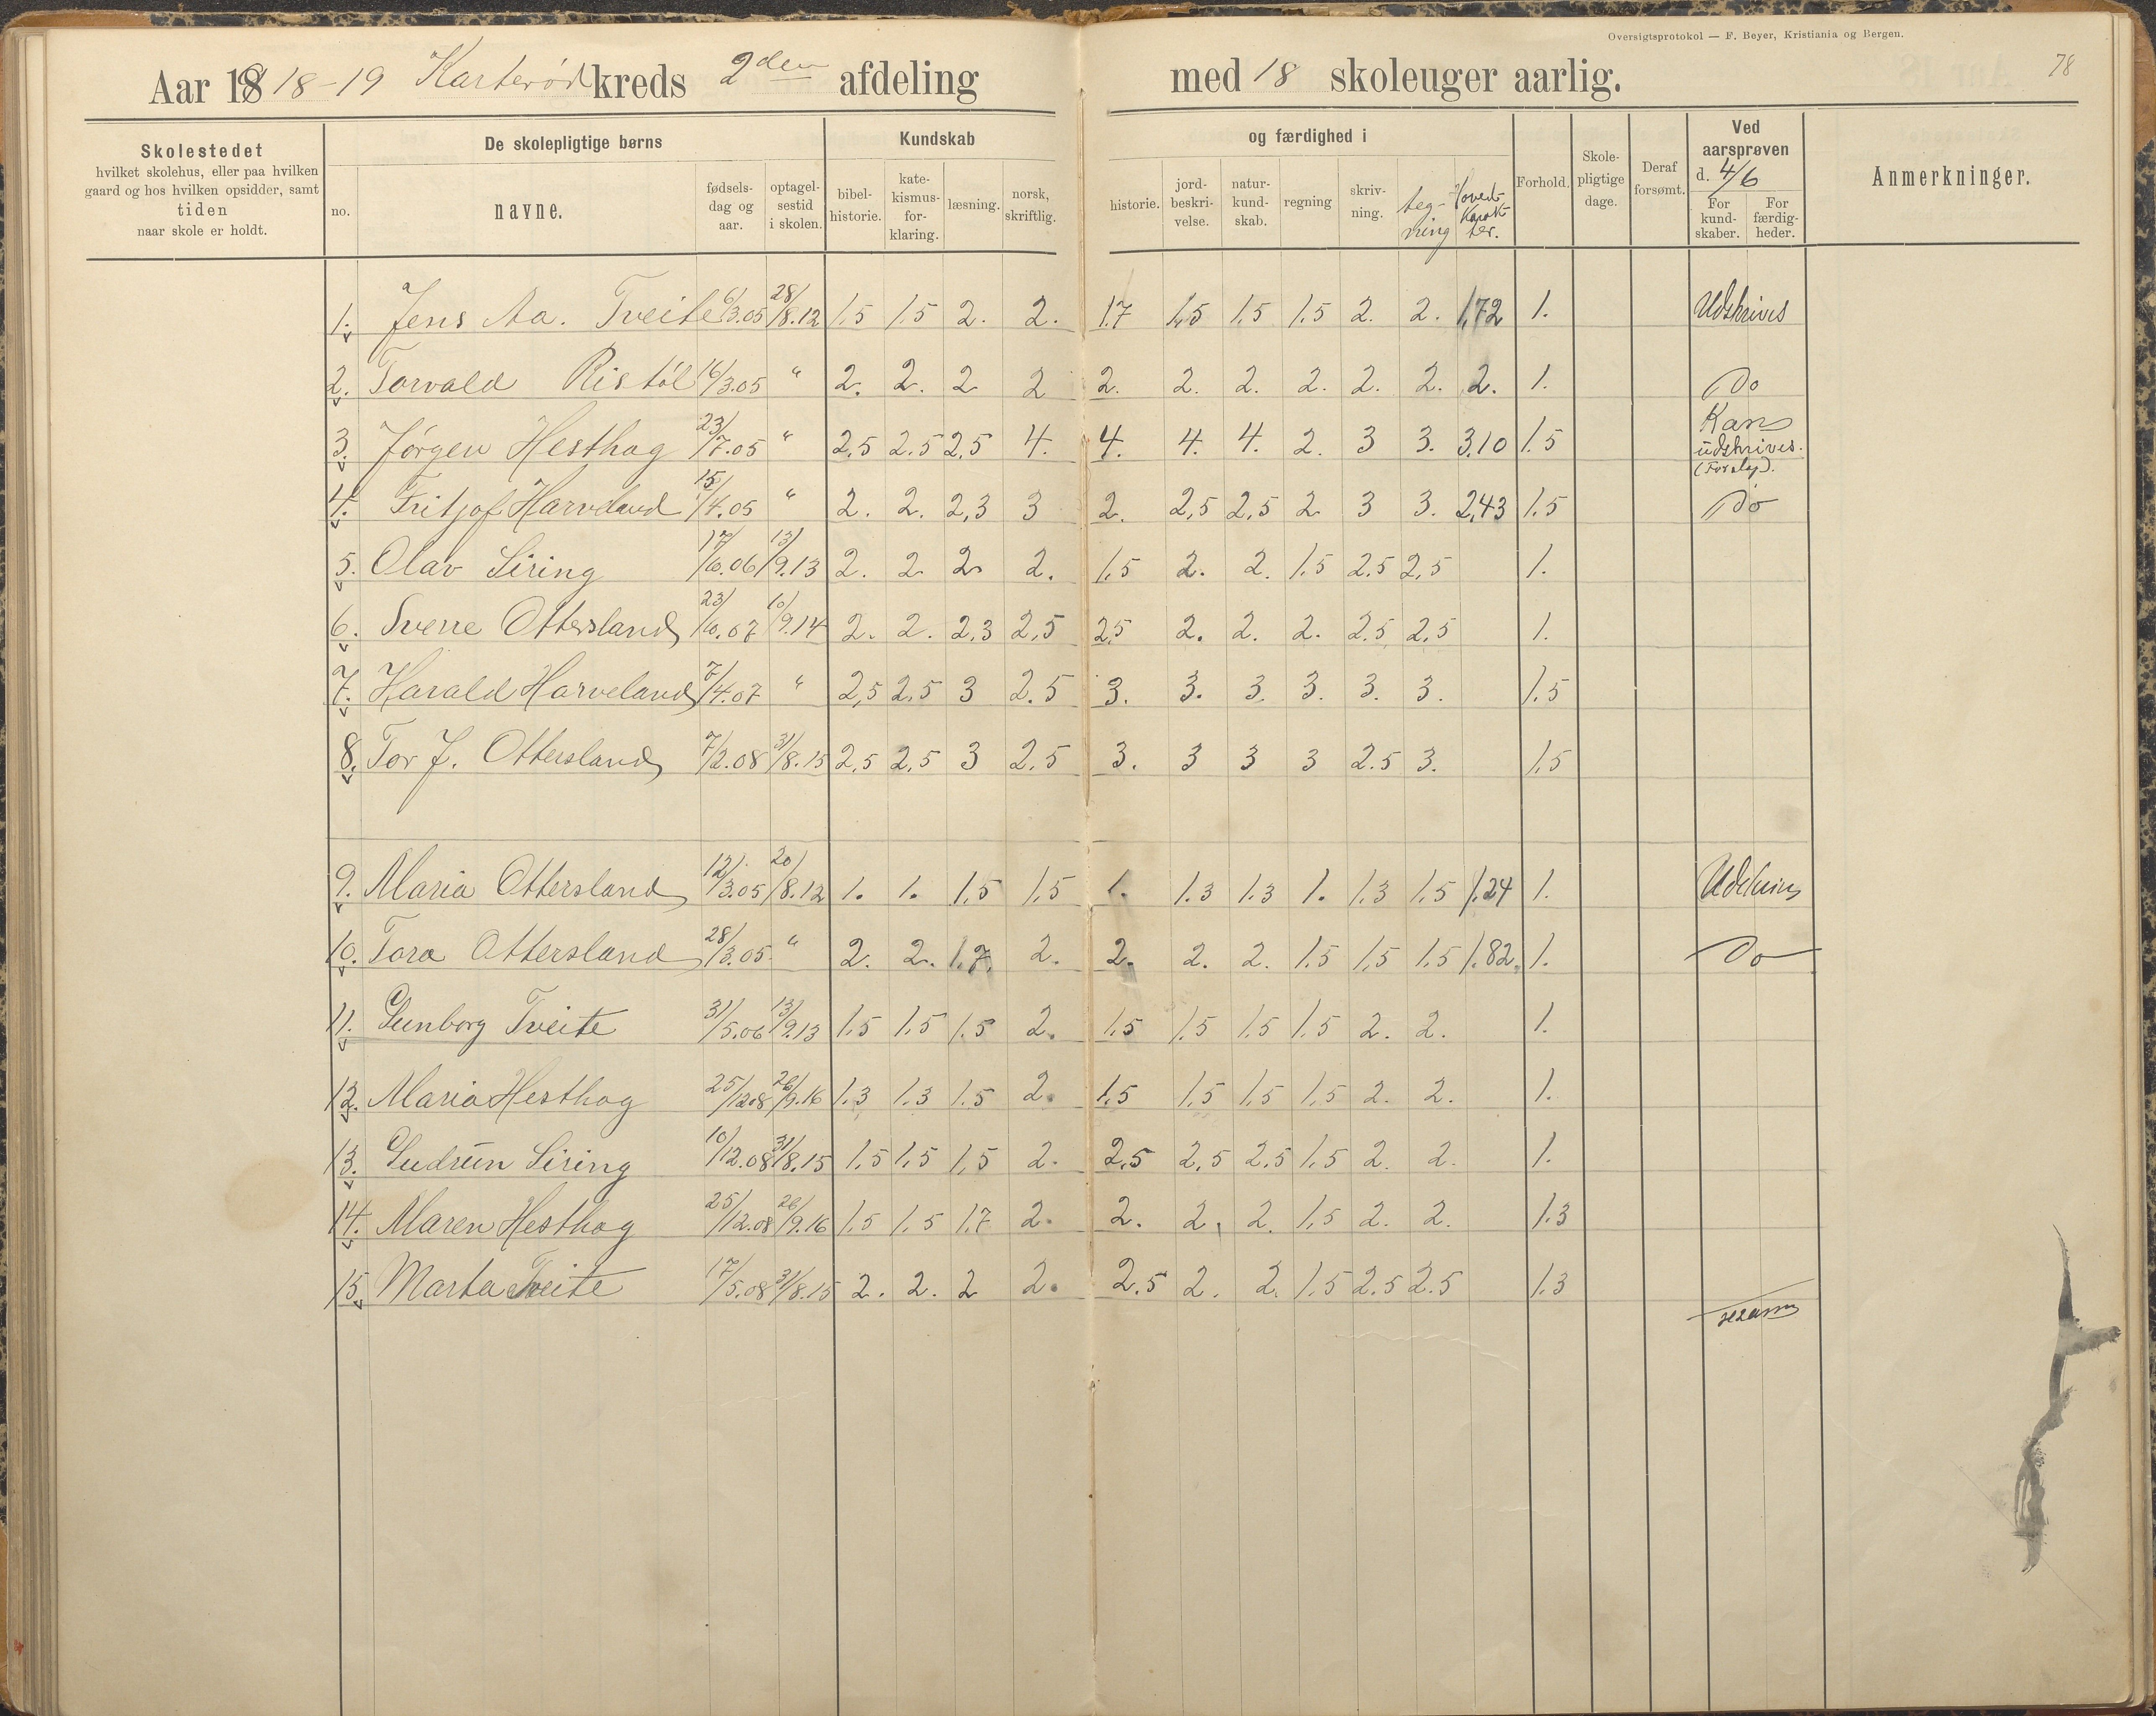 Oversigtsprotokol — F. Beyer, Kristiania og Bergen.
78
Aar 1918-19 Karterød kreds 2den afdeling med 18 skoleuger aarlig.
Skolestedet
hvilket skolehus, eller paa hvilken
gaard og hos hvilken opsidder, samt
tiden
naar skole er holdt.
De skolepligtige børns
no.
navne.
fødsels-
dag og
aar.
optagel-
sestid
i skolen.
Kundskab
bibel-
historie.
kate-
kismus-
for-
klaring.
læsning.
norsk,
skriftlig.
og færdighed i
historie.
jord-
beskri-
velse.
natur-
kund-
skab.
regning
skriv-
ning.
teg-
ning
Hoved-
karak-
ter.
Forhold.
Skole-
pligtige
dage.
Deraf
forsømt.
Ved
aarsprøven
d. 4/6
For
kund-
skaber.
For
færdig-
heder.
Anmerkninger.
1. Jens Aa. Tveite 6/3.05 28/8.12 1.5 1.5 2. 2. 1.7 1,5 1.5 1.5 2. 2. 1,72 1. Udskrives
2. Torvald Ristöl 16/3.05 " 2. 2. 2 2 2. 2. 2. 2. 2. 2. 2. 1. Do
3. Jørgen Hesthag 23/7.05 " 2,5 2.5 2,5 4. 4. 4. 4. 2. 3 3. 3.10 1.5 Kan
udskrives.
4. Fritjof Harveland 15/4.05 " 2. 2. 2,3 3 2. 2,5 2,5 2 3 3. 2,43 1.5 Do
5. Olav Siring 17/6.06 13/9.13 2. 2 2 2. 1.5 2. 2. 1.5 2.5 2,5 1.
6. Sverre Ottersland 23/10.07 10/9.14 2. 2. 2,3 2,5 2,5 2. 2. 2. 2.5 2,5 1.
7. Harald Harveland 7/4.07 " 2,5 2.5 3 2.5 3. 3. 3. 3. 3. 3. 1.5
8. Tor J. Ottersland 7/2.08 31/8.15 2,5 2,5 3 2.5 3. 3 3 3 2.5 3. 1.5
9. Maria Ottersland 12/3.05 20/8.12 1. 1. 1.5 1.5 1. 1.3 1.3 1. 1.3 1.5 1.24 1.
10. Tora Ottersland 28/3.05 " 2. 2. 1.7. 2. 2. 2. 2. 1.5 1,5 1.5 1.82. 1. Do
11. Gunborg Tveite 31/5.06 13/9.13 1.5 1.5 1.5 2. 1.5 1.5 1.5 1.5 2. 2. 1.
12. Maria Hesthag 25/12.08 26/9.16 1.3 1.3 1.5 2. 1.5 1.5 1.5 1.5 2. 2. 1.
13. Gudrun Siring 10/12.08 31/8.15 1.5 1.5 1,5 2. 2,5 2,5 2,5 1.5 2. 2. 1.
14. Maren Hesthag 25/12.08 26/9.16 1.5 1.5 1.7 2. 2. 2. 2. 1.5 2. 2. 1.3
15. Marta Tveite 17/5.08 31/8.15 2. 2. 2 2. 2.5 2. 2. 1.5 2.5 2.5 1.3